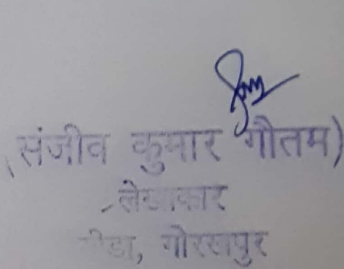 (संजीव कुमार गौतम)
लेखाकार
गोरखपुर